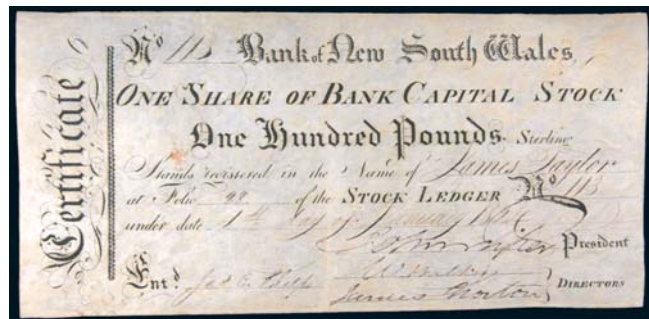 Certificate
No 113 Bank of New South Wales,
ONE SHARE OF BANK CAPITAL STOCK
One Hundred Pounds Sterling
Stands registered in the Name of James Taylor
at Folio of the STOCK LEDGER No 113
under date 1st day of January
President
Entd.
James Norton DIRECTORS